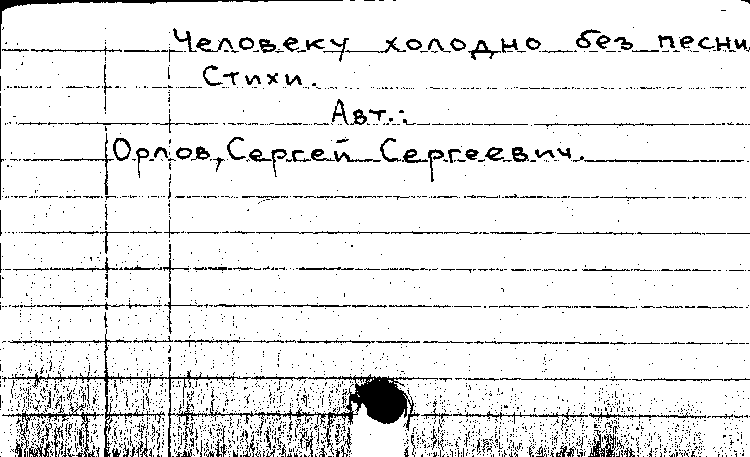 Человеку холодно без песни
Стихи.
Авт.:
Орлов, Сергей Сергеевич.